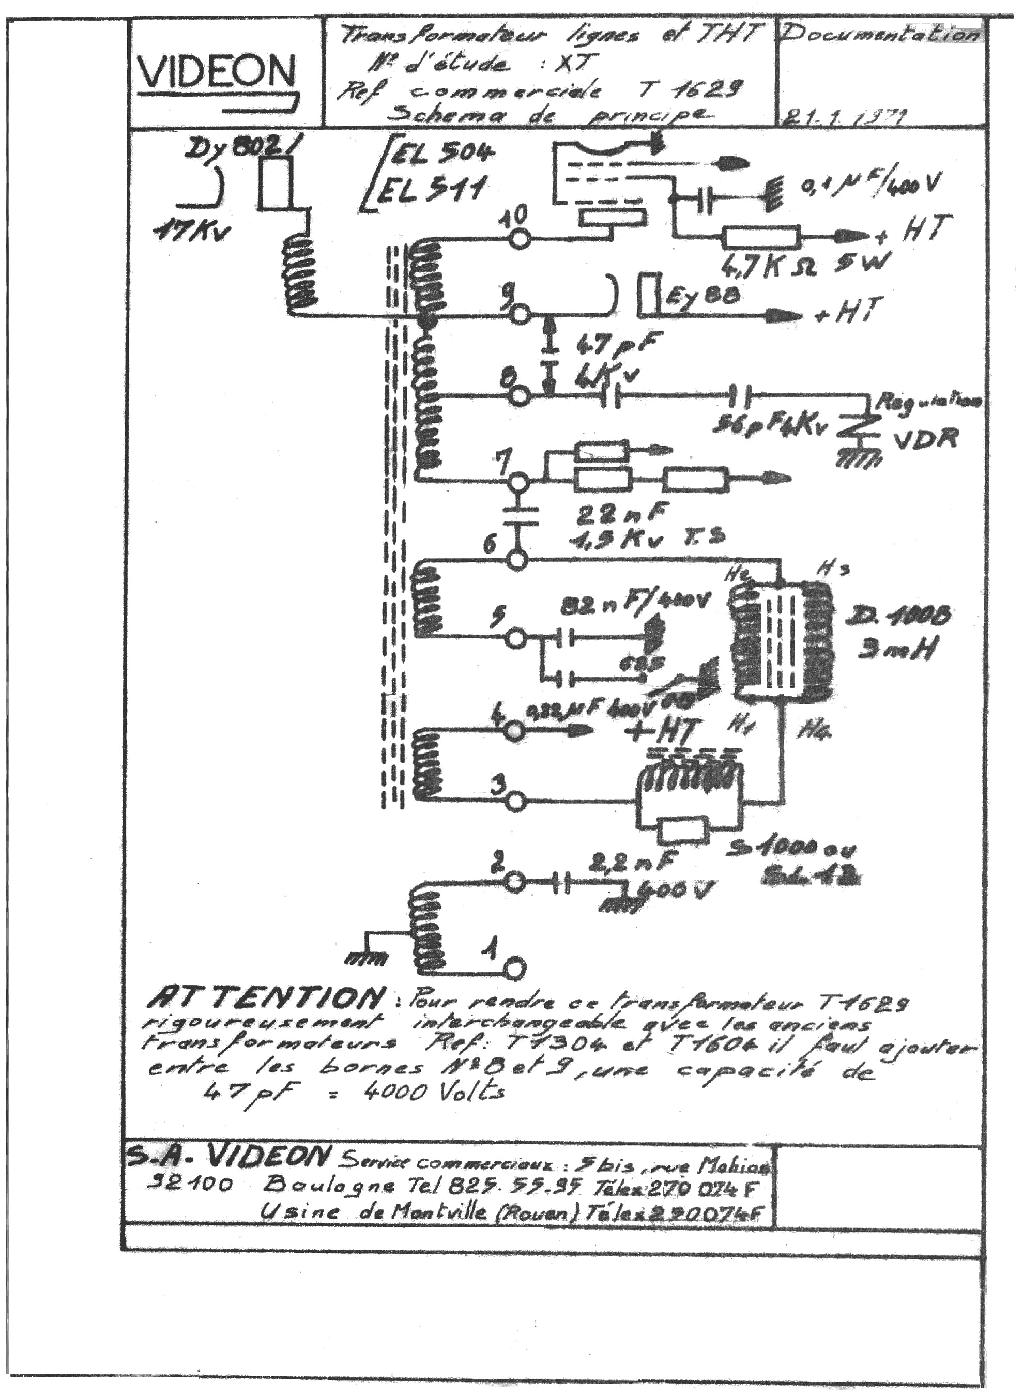 VIDEON
Transformateur lignes et THT
N° d'étude : XT
Ref commerciale T 1629
Schema de principe
Documentation
21.1.1971
Dy 802
17Kv
EL 504
EL 511
0,1 µF/400V
+ HT
4,7K Ω 5W
10
9
Ey 88
+ HT
47 pF
4Kv
8
56 pF 4Kv
Regulation
VDR
7
22 nF
1,5 Kv T.S
6
H2
H3
5
82 nF/400V
D. 1008
3 mH
625
4
0,22µF 400V
+HT
H1
H4
3
S. 1000 ou
2
2,2 nF
400V
1
ATTENTION : Pour rendre ce transformateur T1629
rigoureusement interchangeable avec les anciens
transformateurs Ref: T1304 et T1604 il faut ajouter
entre les bornes N°8 et 9, une capacité de
47pF = 4000 Volts
S.A. VIDEON Service commerciaux : 5 bis, rue Mahias
92100 Boulogne Tel 825.55.95 Télex 270 074 F
Usine de Montville (Rouen) Télex 270074F